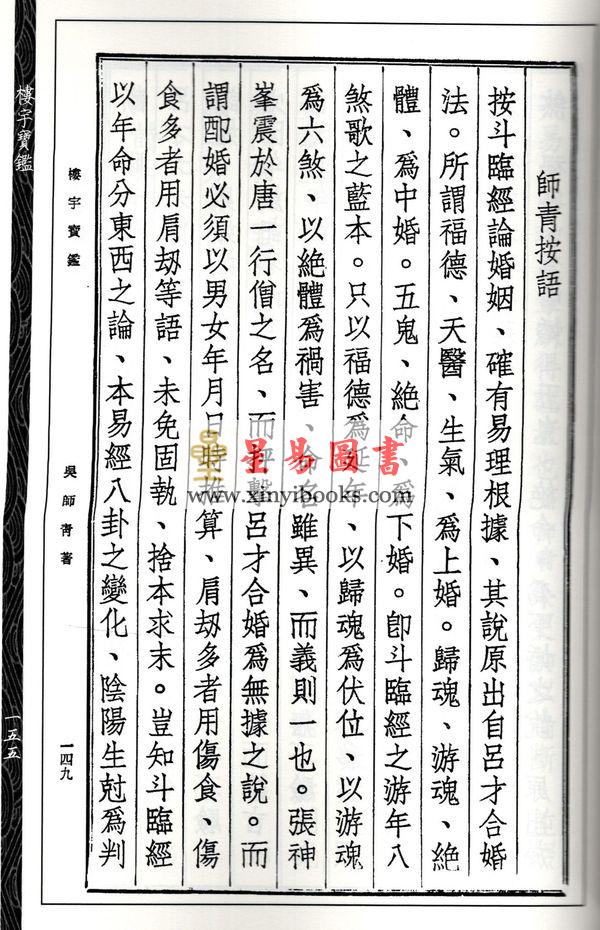 師青按語
按斗臨經論婚姻、確有易理根據、其說原出自呂才合婚
法。所謂福德、天醫、生氣、爲上婚。歸魂、游魂、絕
體、爲中婚。五鬼、絕命、爲下婚。卽斗臨經之游年八
煞歌之藍本。只以福德爲延年、以歸魂爲伏位、以游魂
爲六煞、以絕體爲禍害、命名雖異、而義則一也。張神
峯震於唐一行僧之名、而抨擊呂才合婚爲無據之說。而
謂配婚必須以男女年月日時推算、肩刧多者用傷食、傷
食多者用肩刧等語、未免固執、捨本求末。豈知斗臨經
以年命分東西之論、本易經八卦之變化、陰陽生尅爲判
樓宇寶鑑
吳師青著
一四九
樓宇寶鑑
一五五
星易圖書
www.xinyibooks.com